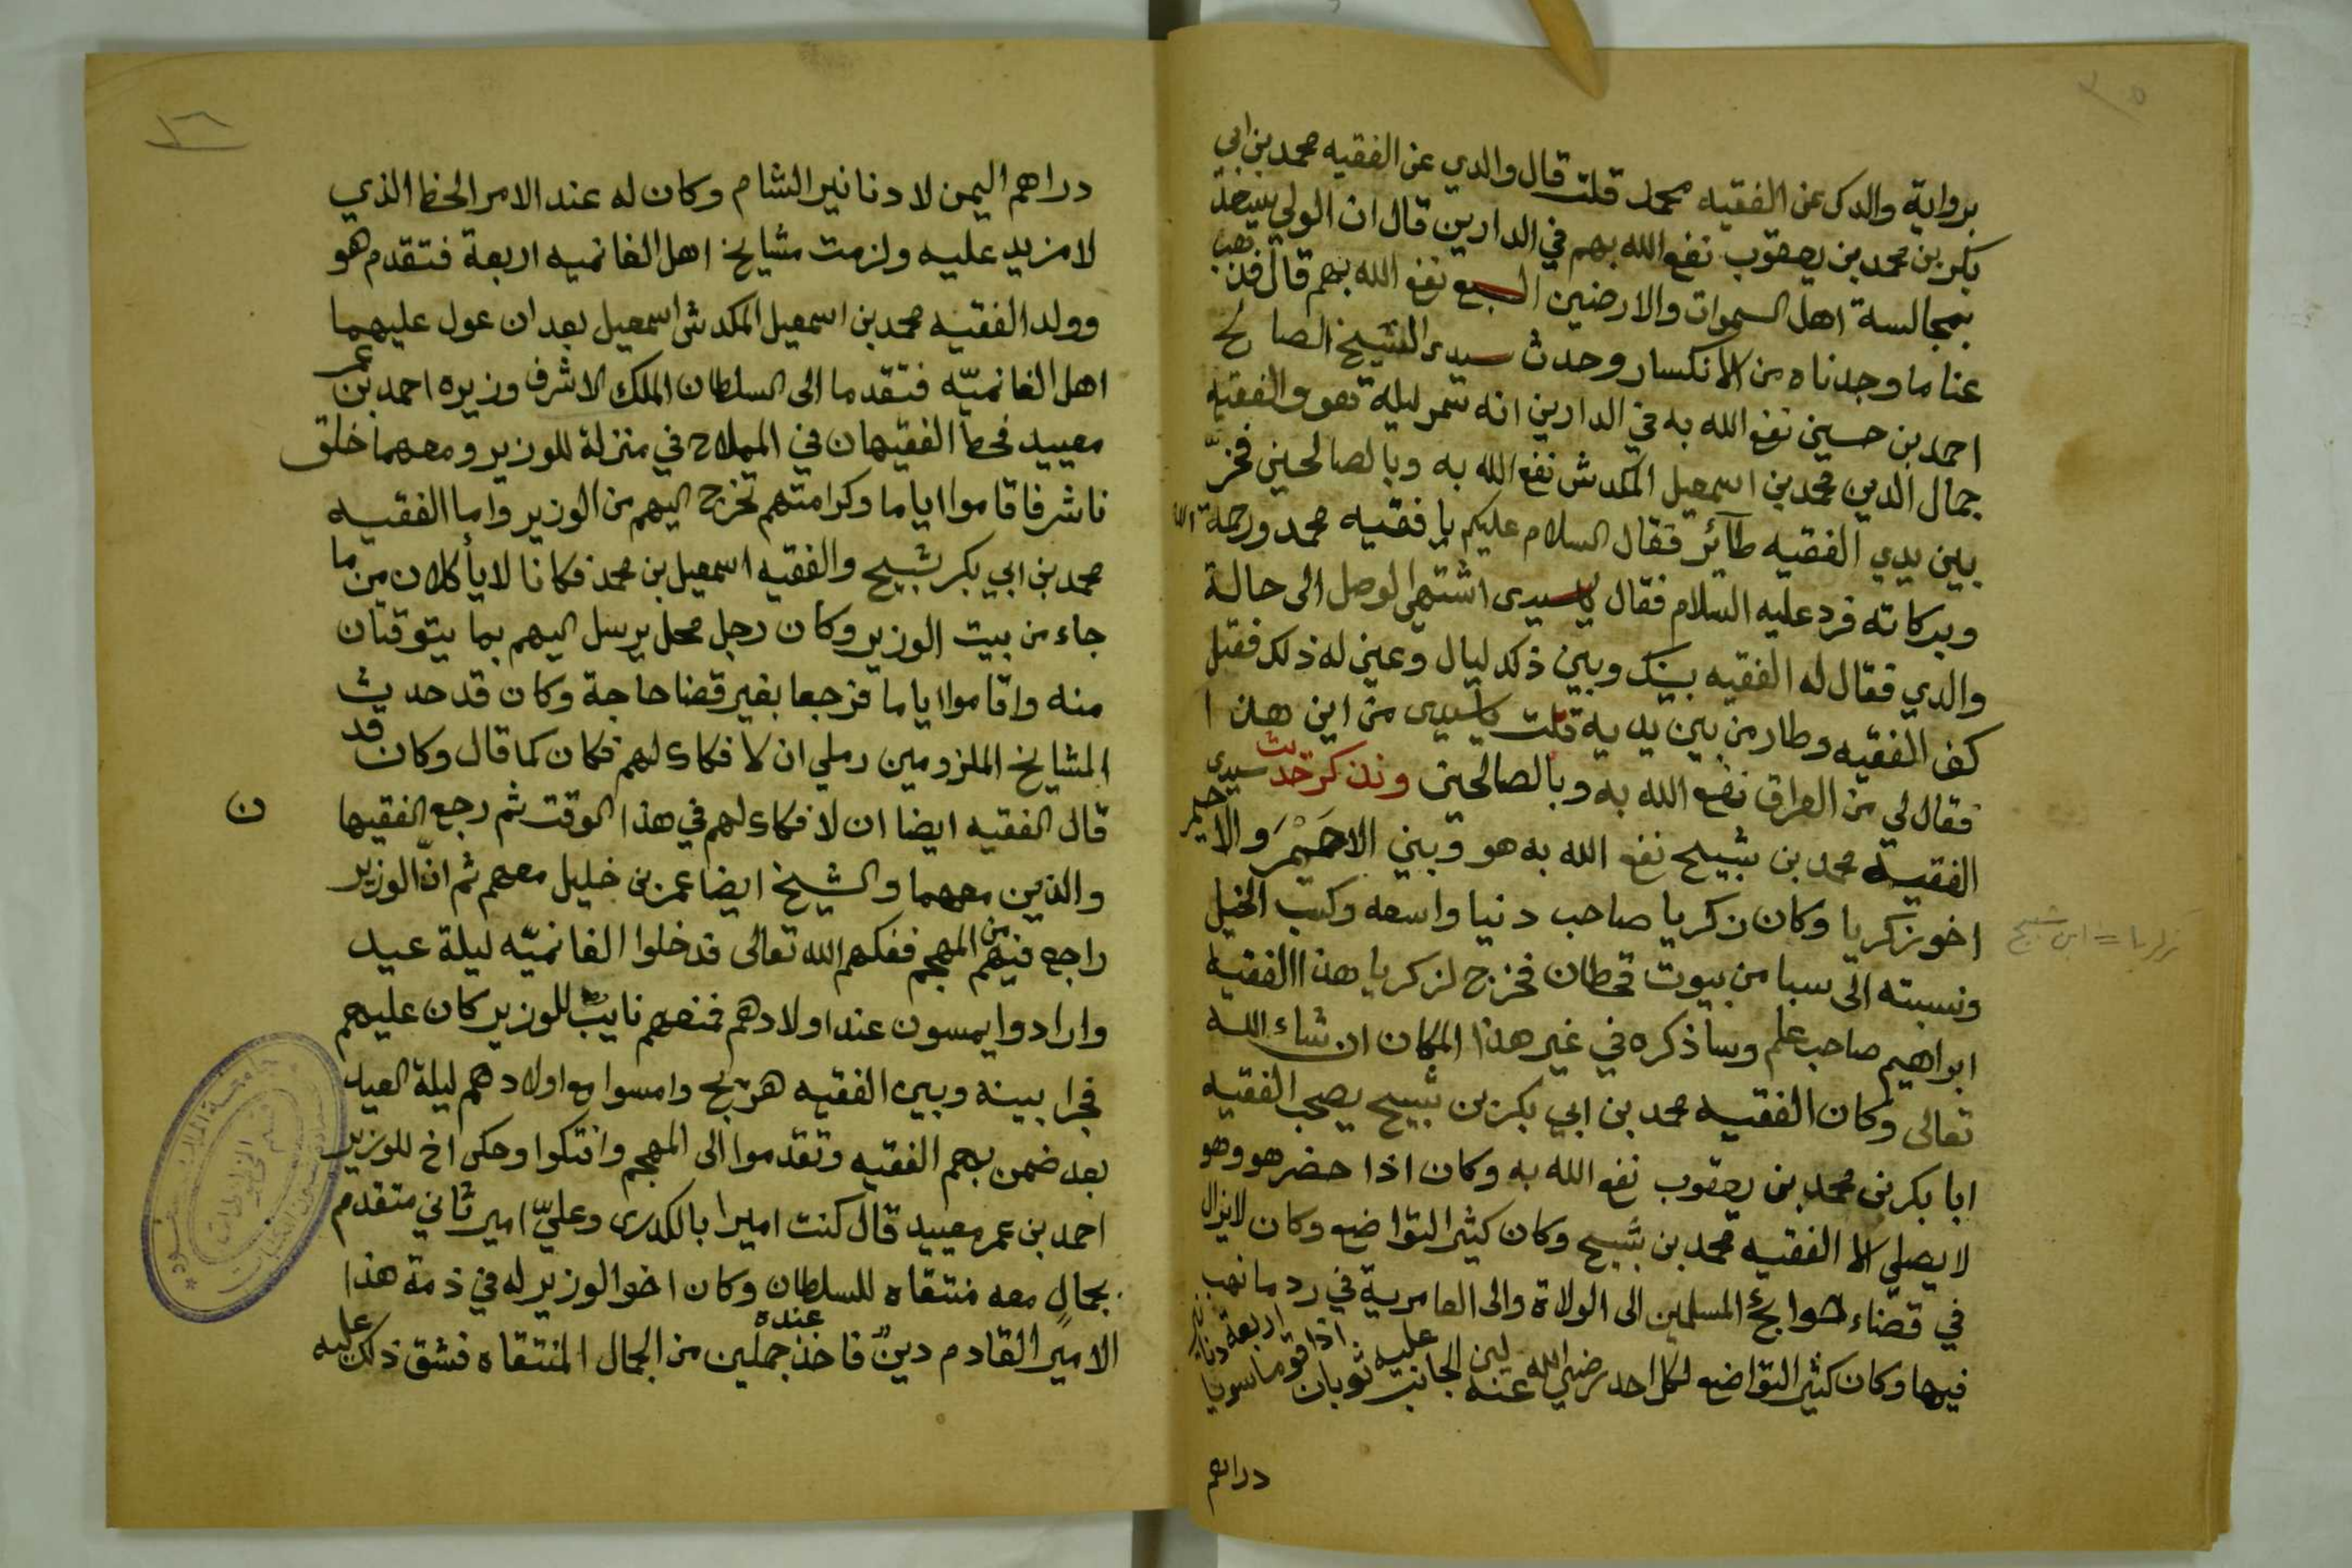 برواية والدي عن الفقيه محمد قلت قال والدي عن الفقيه محمد بن ابي
بكر بن محمد بن يعقوب نفع الله بهم في الدارين قال ان الولي
بمجالسة اهل السموات والارضين السبع نفع الله بهم قال فذهب
عنا ما وجدناه من الانكسار وحدث سيدى الشيخ الصالح
احمد بن حسين نفع الله به في الدارين انه سمر ليلة هو والفقيه
جمال الدين محمد بن اسمعيل المكدش نفع الله به وبالصالحين فخرّ
بين يدي الفقيه طآئر فقال السلام عليكم يا فقيه محمد ورحمة الله
وبركاته فرد عليه السلام فقال يا سيدى اشتهى الوصل الى حالة
والدي فقال له الفقيه بينك وبين ذلك ليال وعين له ذلك فقبل
كف الفقيه وطار من بين يديه قلت يا سيدى من اين هذا
فقال لي من العراق نفع الله به وبالصالحين ونذكر حديث سيدى
الفقيه محمد بن شبيح نفع الله به هو وبني الاحيمر والاحيمر
اخو زكريا وكان زكريا صاحب دنيا واسعه وكسب الخيل
ونسبته الى سبا من بيوت قحطان فخرج لزكريا هذا الفقيه
ابراهيم صاحب علم وساذكره في غير هذا المكان ان شاء الله
تعالى وكان الفقيه محمد بن ابي بكر بن شبيح يصحب الفقيه
ابا بكر بن محمد بن يعقوب نفع الله به وكان اذا حضر هو وهو
لا يصلي الا الفقيه محمد بن شبيح وكان كثير التواضع وكان لايزال
في قضاء حوائج المسلمين الى الولاة والى العامرية في رد ما نهب
فيها وكان كثير التواضع لكل احد رضي الله عنه لين الجانب عليه ثوبان اذا قوما سويا اربعة دنانير
دراهم
زكريا = ابن شبيح
١٦
دراهم اليمن لا دنانير الشام وكان له عند الامر الحظ الذي
لا مزيد عليه ولزمت مشايخ اهل الغانميه اربعة فتقدم هو
وولد الفقيه محمد بن اسمعيل المكدش اسمعيل بعد ان عول عليهما
اهل الغانميّه فتقدما الى السلطان الملك الاشرف وزيره احمد بن عمر
معيبد فحط الفقيهان في المملاح في منزلة للوزير ومعهما خلق
ناشر فاقاموا اياما وكرامتهم تخرج اليهم من الوزير واما الفقيه
محمد بن ابي بكر شبيح والفقيه اسمعيل بن محمد فكانا لا يأكلان من ما
جاء من بيت الوزير وكان رجل محل يرسل اليهم بما يتوقتان
منه واقاموا اياما فرجعا بغير قضا حاجة وكان قد حديث
المشايخ الملزومين رملي ان لا فكاء لهم فكان كما قال وكان قد
قال الفقيه ايضا ان لا فكاء لهم في هذا الوقت ثم رجع الفقيها
ن
والذين معهما والشيخ ايضا عمر بن خليل معهم ثم انّ الوزير
راجع فيهم من المهجم ففكهم الله تعالى فدخلوا الغانميّه ليلة عيد
وارادوا يمسون عند اولادهم فمنعهم نايبٌ للوزير كان عليهم
فجرا بينه وبين الفقيه هرتج وامسوا مع اولادهم ليلة العيد
بعد ضمن بهم الفقيه وتقدموا الى المهجم وافتكوا وحكى اخ للوزير
احمد بن عمر معيبد قال كنت اميرا بالكدرى وعليّ امير ثاني متقدم
بجمالٍ معه منتقاه للسلطان وكان اخو الوزير له في ذمة هذا
الامير القادم دينٌ فاخذ جملين عنده من الجمال المنتقاه فشق ذلك عليه